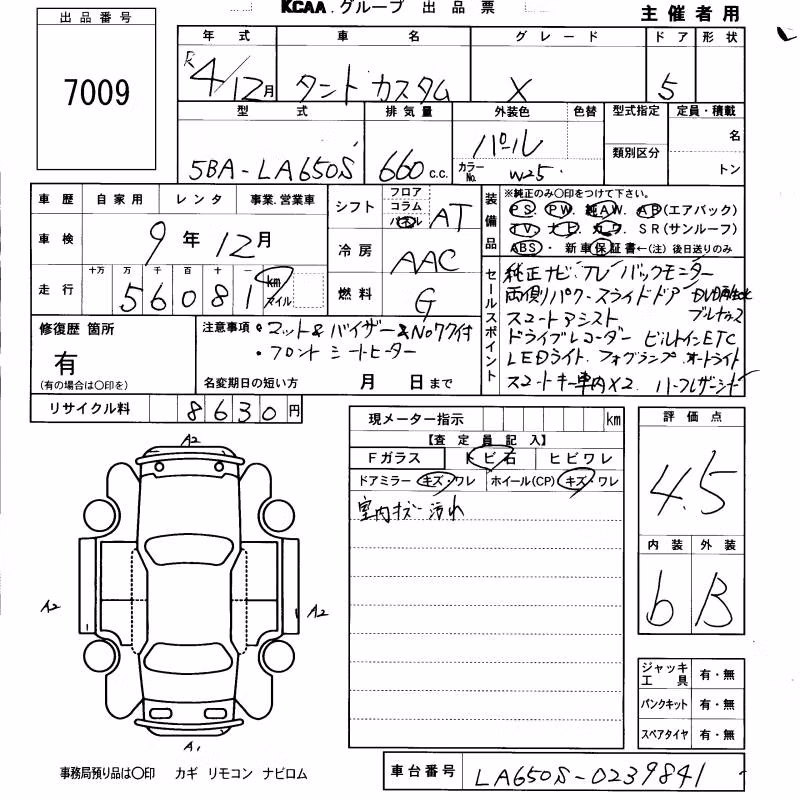 KCAA.グループ 出品票
主催者用
出品番号
7009
年式 車名 グレード ドア 形状
R4/12月 タント カスタム X 5
型式 排気量 外装色 色替 型式指定 定員・積載
5BA-LA650S 660c.c. パール 名
類別区分
カラーNo. W25 トン
車歴 自家用 レンタ 事業.営業車
車検 9年12月
走行 十万 万 千 百 十 一
56081 km マイル
シフト フロア コラム パネル AT
冷房 AAC
燃料 G
装備品
※純正のみ〇印をつけて下さい。
PS. PW. 純AW. AB(エアバック)
TV. ナビ. カワ. SR(サンルーフ)
ABS・ 新車保証書←(注)後日送りのみ
セールスポイント
純正ナビ TV バックモニター
両側パワースライドドア DVD再生
スマートアシスト
ドライブレコーダー ビルトインETC
LEDライト. フォグランプ オートライト
スマートキー車内×2. ハーフレザーシート
修復歴 箇所
有
(有の場合は〇印を)
注意事項・マット&バイザー&Noワク付
・フロント シートヒーター
名変期日の短い方 月 日まで
リサイクル料 8630円
現メーター指示 km
【査定員記入】
Fガラス トビ石 ヒビワレ
ドアミラー キズ・ワレ ホイール(CP) キズ・ワレ
室内キズ 汚れ
評価点
4.5
内装 外装
b B
A2
A2
A2
A1
ジャッキ工具 有・無
パンクキット 有・無
スペアタイヤ 有・無
事務局預り品は〇印 カギ リモコン ナビロム
車台番号 LA650S-0239841